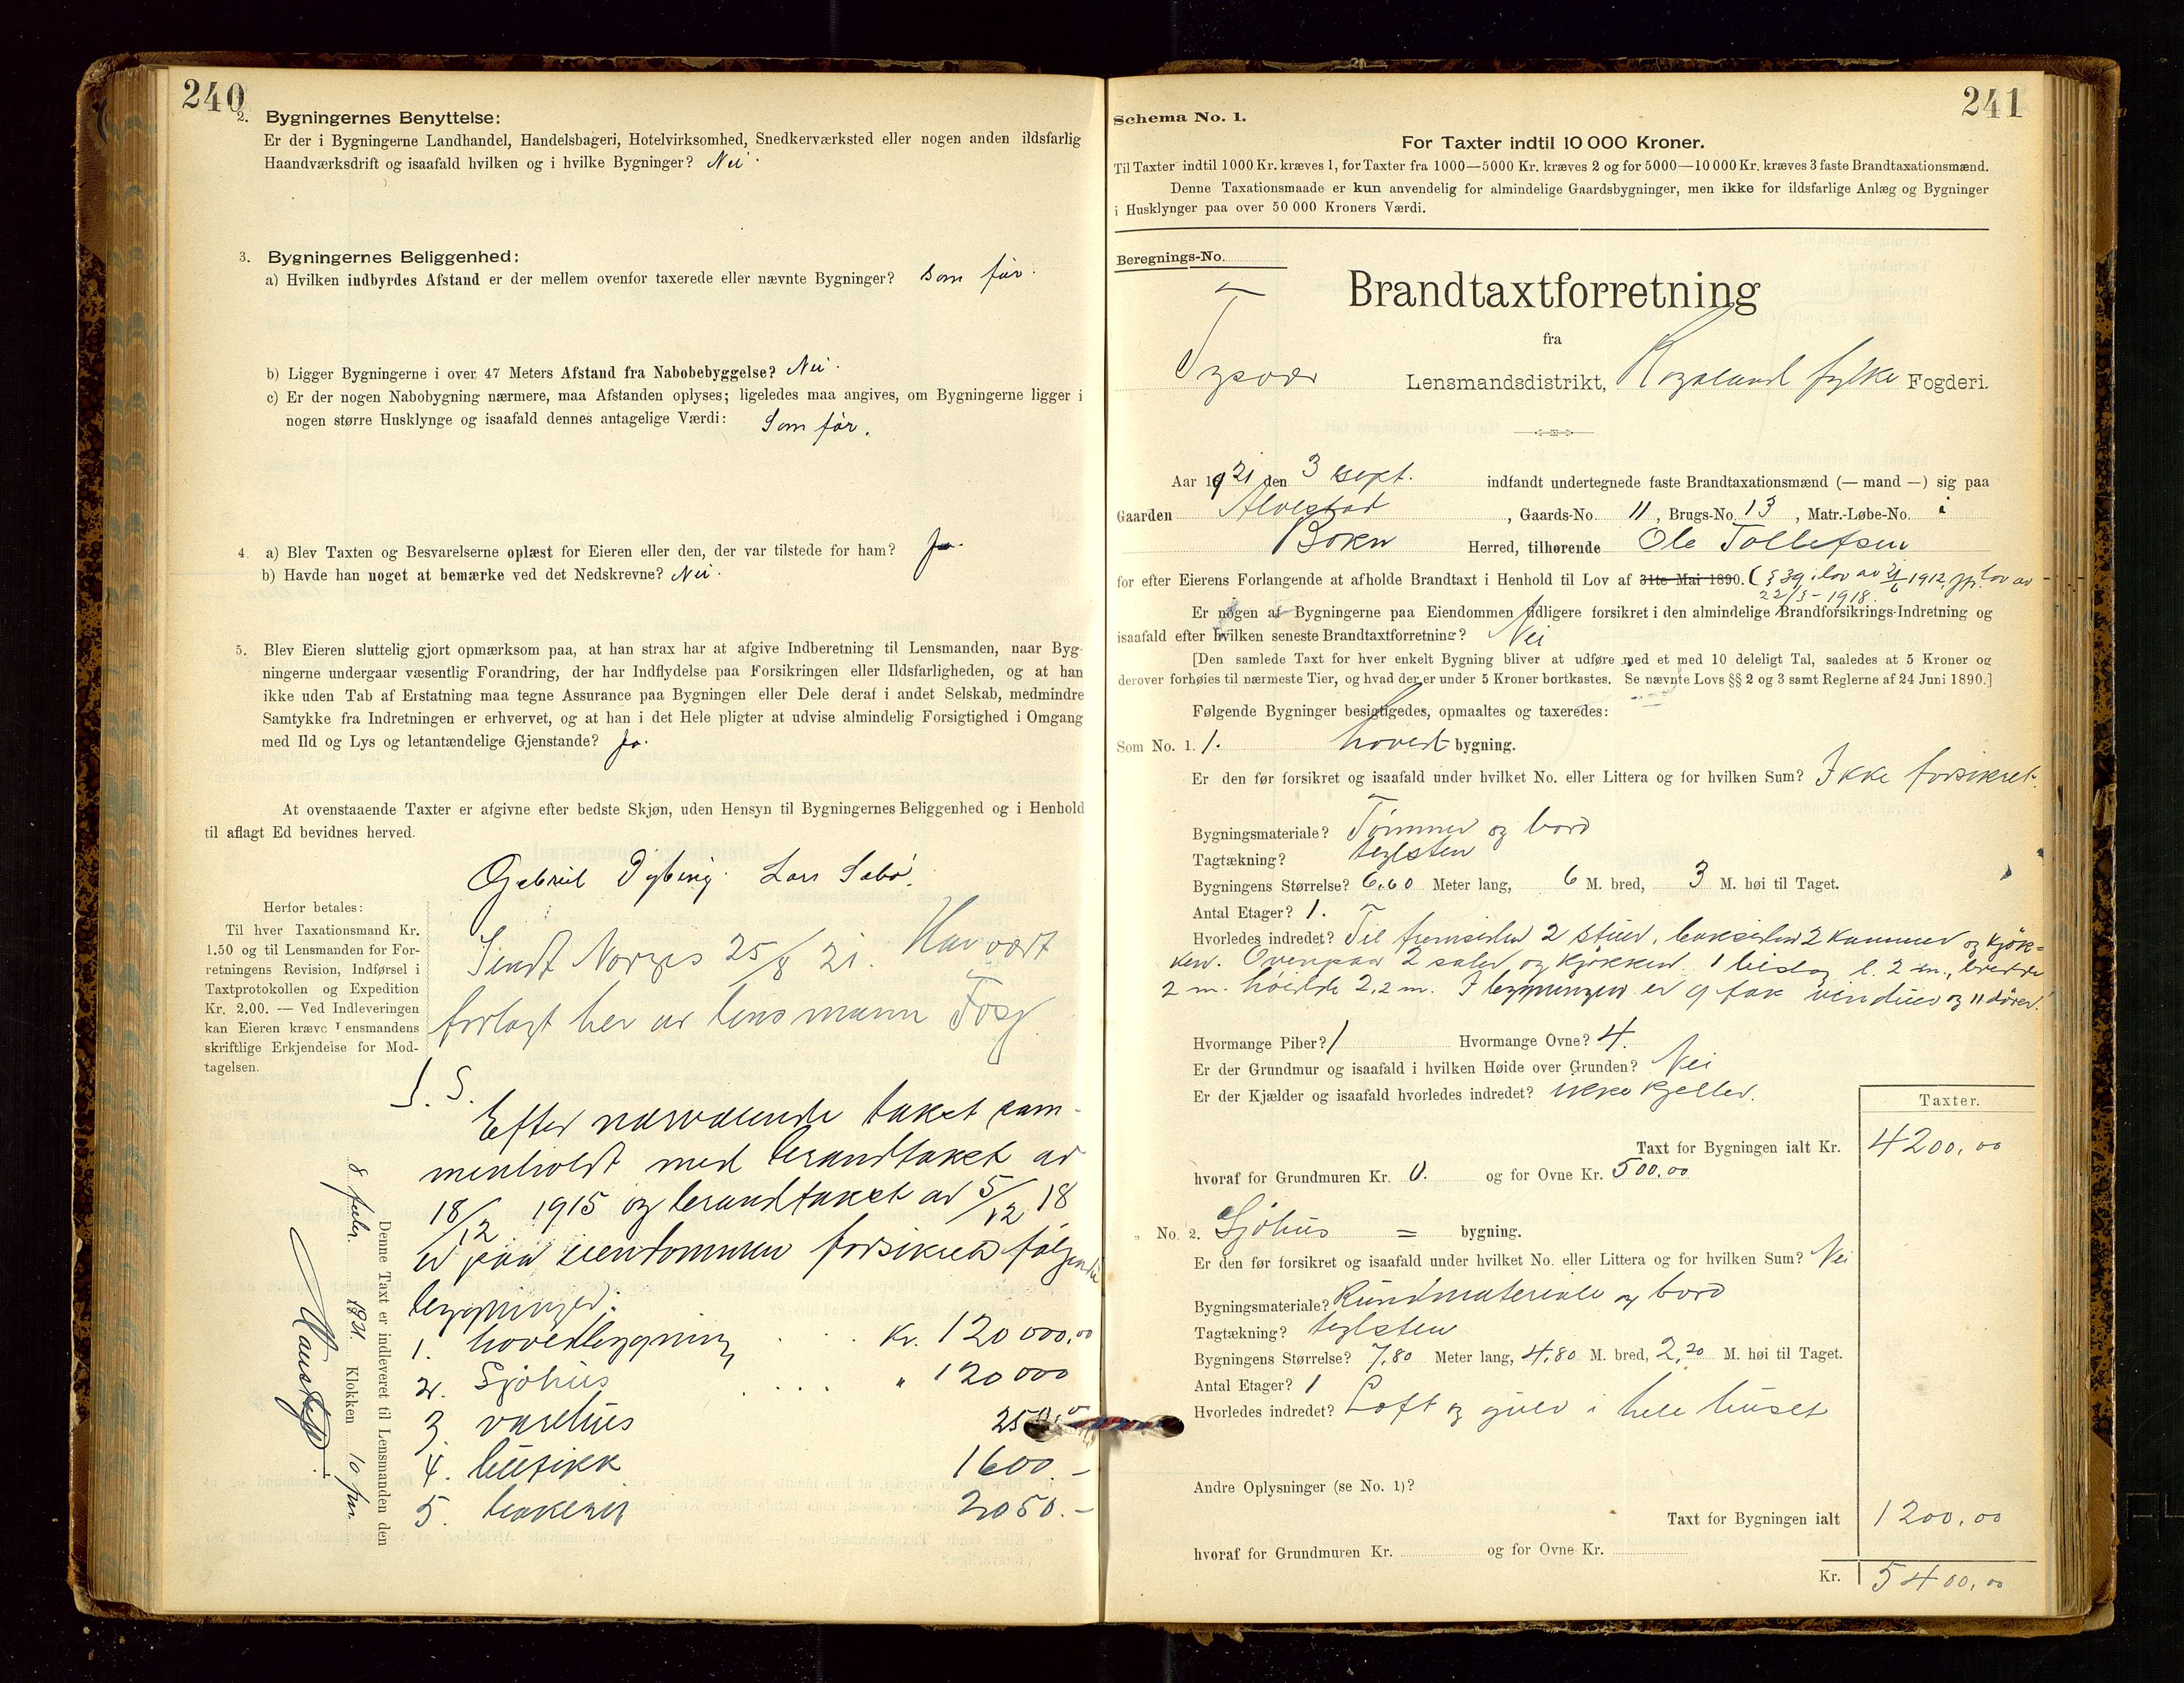 240
2. Bygningernes Benyttelse:
Er der i Bygningerne Landhandel, Handelsbageri, Hotelvirksomhed, Snedkerværksted eller nogen anden ildsfarlig
Haandværksdrift og isaafald hvilken og i hvilke Bygninger? Nei.
3. Bygningernes Beliggenhed:
a) Hvilken indbyrdes Afstand er der mellem ovenfor taxerede eller nævnte Bygninger? Som før.
b) Ligger Bygningerne i over 47 Meters Afstand fra Nabobebyggelse? Nei.
c) Er der nogen Nabobygning nærmere, maa Afstanden oplyses; ligeledes maa angives, om Bygningerne ligger i
nogen større Husklynge og isaafald dennes antagelige Værdi: Som før.
4. a) Blev Taxten og Besvarelserne oplæst for Eieren eller den, der var tilstede for ham? Ja.
b) Havde han noget at bemærke ved det Nedskrevne? Nei.
5. Blev Eieren sluttelig gjort opmærksom paa, at han strax har at afgive Indberetning til Lensmanden, naar Byg-
ningerne undergaar væsentlig Forandring, der har Indflydelse paa Forsikringen eller Ildsfarligheden, og at han
ikke uden Tab af Erstatning maa tegne Assurance paa Bygningen eller Dele deraf i andet Selskab, medmindre
Samtykke fra Indretningen er erhvervet, og at han i det Hele pligter at udvise almindelig Forsigtighed i Omgang
med Ild og Lys og letantændelige Gjenstande? Ja.
At ovenstaaende Taxter er afgivne efter bedste Skjøn, uden Hensyn til Bygningernes Beliggenhed og i Henhold
til aflagt Ed bevidnes herved.
Gabriel Dybing. Lars Sabø.
Herfor betales:
Til hver Taxationsmand Kr.
1.50 og til Lensmanden for For-
retningens Revision, Indførsel i
Taxtprotokollen og Expedition
Kr. 2.00. — Ved Indleveringen
kan Eieren kræve Lensmandens
skriftlige Erkjendelse for Mod-
tagelsen.
Sendt Norges 25/8 21. Har vært
forlagt her av lensmann
Efter nærværende takst sam-
menholdt med brandtakst av
18/12 1915 og brandtakst av 5/12 18
er paa eiendommen forsikret følgende
bygninger:
1. hovedbygning . . . Kr. 120 000.00
2. Sjøhus . . . . " 120 000
3. varehus
4. butikk 1600.-
5. bakeri 2050.-
Denne Taxt er indleveret til Lensmanden den
8 febr. 1921 Klokken 10 fm.
241
Schema No. 1.
For Taxter indtil 10 000 Kroner.
Til Taxter indtil 1000 Kr. kræves 1, for Taxter fra 1000—5000 Kr. kræves 2 og for 5000—10 000 Kr. kræves 3 faste Brandtaxationsmænd.
Denne Taxationsmaade er kun anvendelig for almindelige Gaardsbygninger, men ikke for ildsfarlige Anlæg og Bygninger
i Husklynger paa over 50 000 Kroners Værdi.
Beregnings-No.
Brandtaxtforretning
fra
Tysvær Lensmandsdistrikt, Rogaland fylke Fogderi.
Aar 1921 den 3 sept. indfandt undertegnede faste Brandtaxationsmænd (— mand —) sig paa
Gaarden Alvestad, Gaards-No. 11, Brugs-No. 13, Matr.-Løbe-No. i
Bokn Herred, tilhørende Ole Tollefsen
for efter Eierens Forlangende at afholde Brandtaxt i Henhold til Lov af 31te Mai 1890. (§ 39 i lov av 1912, jfr. lov av
22/3 - 1918.
Er nogen af Bygningerne paa Eiendommen tidligere forsikret i den almindelige Brandforsikrings-Indretning og
isaafald efter hvilken seneste Brandtaxtforretning? Nei
[Den samlede Taxt for hver enkelt Bygning bliver at udføre med et med 10 deleligt Tal, saaledes at 5 Kroner og
derover forhøies til nærmeste Tier, og hvad der er under 5 Kroner bortkastes. Se nævnte Lovs §§ 2 og 3 samt Reglerne af 24 Juni 1890.]
Følgende Bygninger besigtigedes, opmaaltes og taxeredes:
Som No. 1. 1. hoved bygning.
Er den før forsikret og isaafald under hvilket No. eller Littera og for hvilken Sum? Ikke forsikret.
Bygningsmateriale? Tømmer og bord
Tagtækning? teglsten
Bygningens Størrelse? 6.60 Meter lang, 6 M. bred, 3 M. høi til Taget.
Antal Etager? 1.
Hvorledes indredet? Til fremsiden 2 stuer, baksiden 2 kammer og kjøk-
ken. Ovenpaa 2 saler og kjøkken. 1 bislag l. 2 m., bredde
2 m. høide 2,2 m. I bygningen er 9 fag vinduer og 11 dører.
Hvormange Piber? 1 Hvormange Ovne? 4.
Er der Grundmur og isaafald i hvilken Høide over Grunden? Nei
Er der Kjælder og isaafald hvorledes indredet? ikke kjeller.
Taxter.
Taxt for Bygningen ialt Kr. 4200.00
hvoraf for Grundmuren Kr. 0. og for Ovne Kr. 500.00
" No. 2. Sjøhus = bygning.
Er den før forsikret og isaafald under hvilket No. eller Littera og for hvilken Sum? Nei
Bygningsmateriale? Rundmateriale og bord
Tagtækning? teglsten
Bygningens Størrelse? 7.80 Meter lang, 4.80 M. bred, 2.20 M. høi til Taget.
Antal Etager? 1
Hvorledes indredet? Loft og gulv i hele huset
Andre Oplysninger (se No. 1)?
Taxt for Bygningen ialt 1200.00
hvoraf for Grundmuren Kr. og for Ovne Kr.
Kr. 5400.00